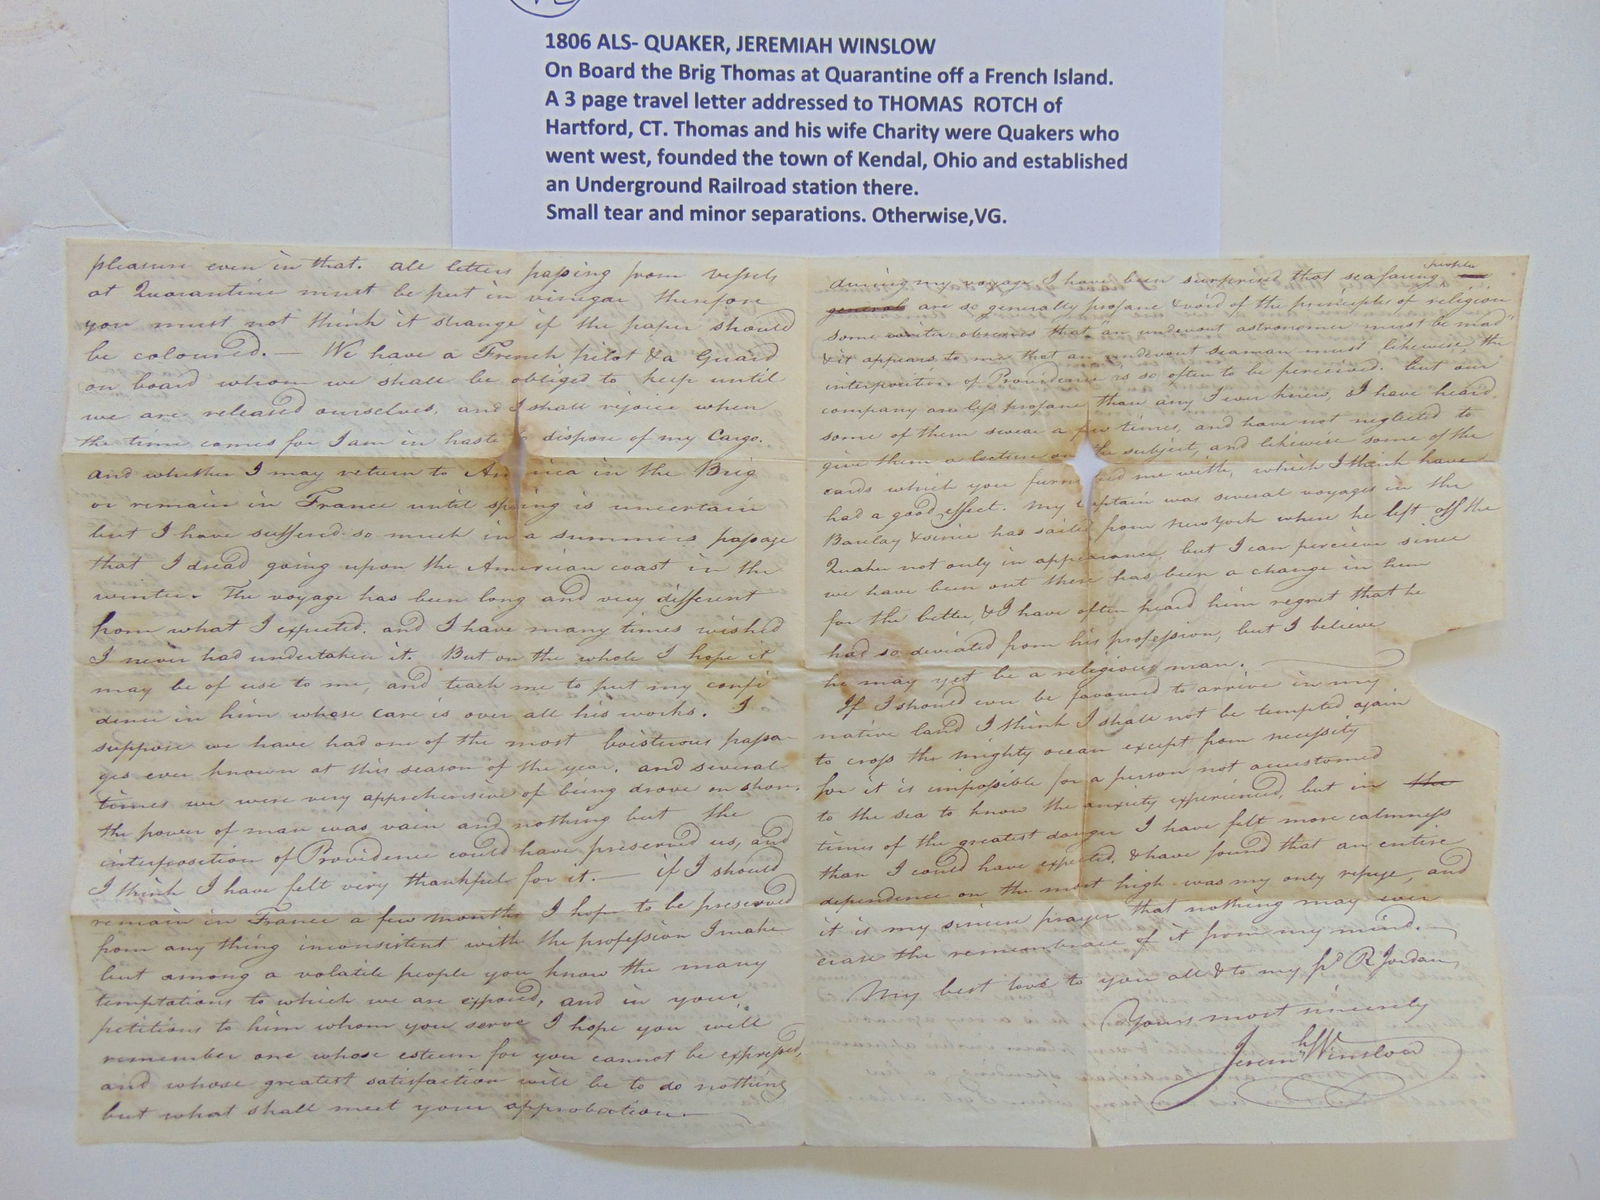 1806 ALS- QUAKER, JEREMIAH WINSLOW
On Board the Brig Thomas at Quarantine off a French Island.
A 3 page travel letter addressed to THOMAS ROTCH of
Hartford, CT. Thomas and his wife Charity were Quakers who
went west, founded the town of Kendal, Ohio and established
an Underground Railroad station there.
Small tear and minor separations. Otherwise,VG.
pleasure even in that. all letters passing from vessels
at Quarantine must be put in vinegar therefore
you must not think it strange if the paper should
be coloured. — We have a French pilot & a Guard
on board whom we shall be obliged to keep until
we are released ourselves, and I shall rejoice when
the time comes for I am in haste to dispose of my Cargo.
and whether I may return to America in the Brig
or remain in France until spring is uncertain
but I have suffered so much in a summers passage
that I dread going upon the American coast in the
winter. The voyage has been long and very different
from what I expected. and I have many times wished
I never had undertaken it. But on the whole I hope it
may be of use to me, and teach me to put my confi
dence in him whose care is over all his works. I
suppose we have had one of the most boisterous passa
ges ever known at this season of the year. and several
times we were very apprehensive of being drove on shore.
the power of man was vain and nothing but the
interposition of Providence could have preserved us, and
I think I have felt very thankful for it. — if I should
remain in France a few months I hope to be preserved
from any thing inconsistent with the profession I make
but among a volatile people you know the many
temptations to which we are exposed, and in your
petitions to him whom you serve I hope you will
remember one whose esteem for you cannot be expressed,
and whose greatest satisfaction will be to do nothing
but what shall meet your approbation. —
during my voyage I have been surprised that seafaring people
general are so generally profane & void of the principles of religion
some writer observes that "an undevout astronomer must be mad"
& it appears to me that an undevout seaman must likewise, the
interposition of Providence is so often to be perceived. but our
company are less profane than any I ever knew, I have heard
some of them swear a few times, and have not neglected to
give them a lecture on the subject, and likewise some of the
cards which you furnished me with, which I think have
had a good effect. My Captain was several voyages in the
Barclay & since has sailed from New York where he left off the
Quaker not only in appearance but I can perceive since
we have been out there has been a change in him
for the better, & I have often heard him regret that he
had so deviated from his profession, but I believe
he may yet be a religious man. —
If I should ever be favoured to arrive in my
native land I think I shall not be tempted again
to cross the mighty ocean except from necessity
for it is impossible for a person not accustomed
to the sea to know the anxiety experienced, but in the
times of the greatest danger I have felt more calmness
than I could have expected. & have found that an entire
dependence on the most high was my only refuge, and
it is my sincere prayer that nothing may ever
erase the remembrance of it from my mind. —
My best love to you all & to my frd R Jordan,
Yours most sincerely
Jeremh Winslow